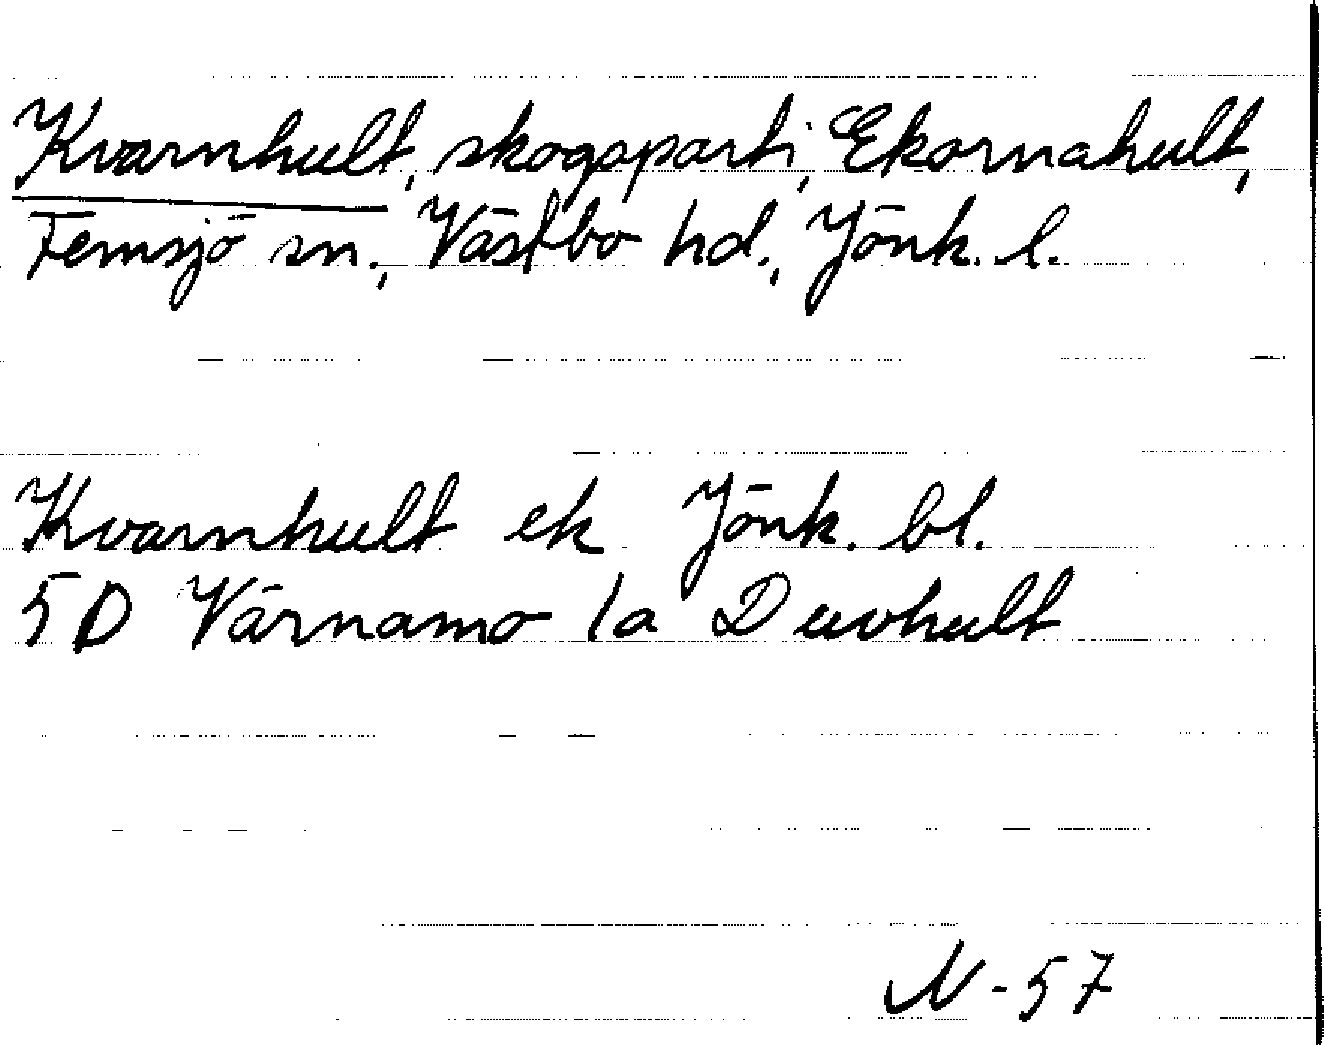 Kvarnhult, skogsparti, Ekornahult,
Femsjö sn., Västbo hd., Jönk. l.
Kvarnhult ek Jönk. bl.
5D Värnamo 1a Duvhult
N-57